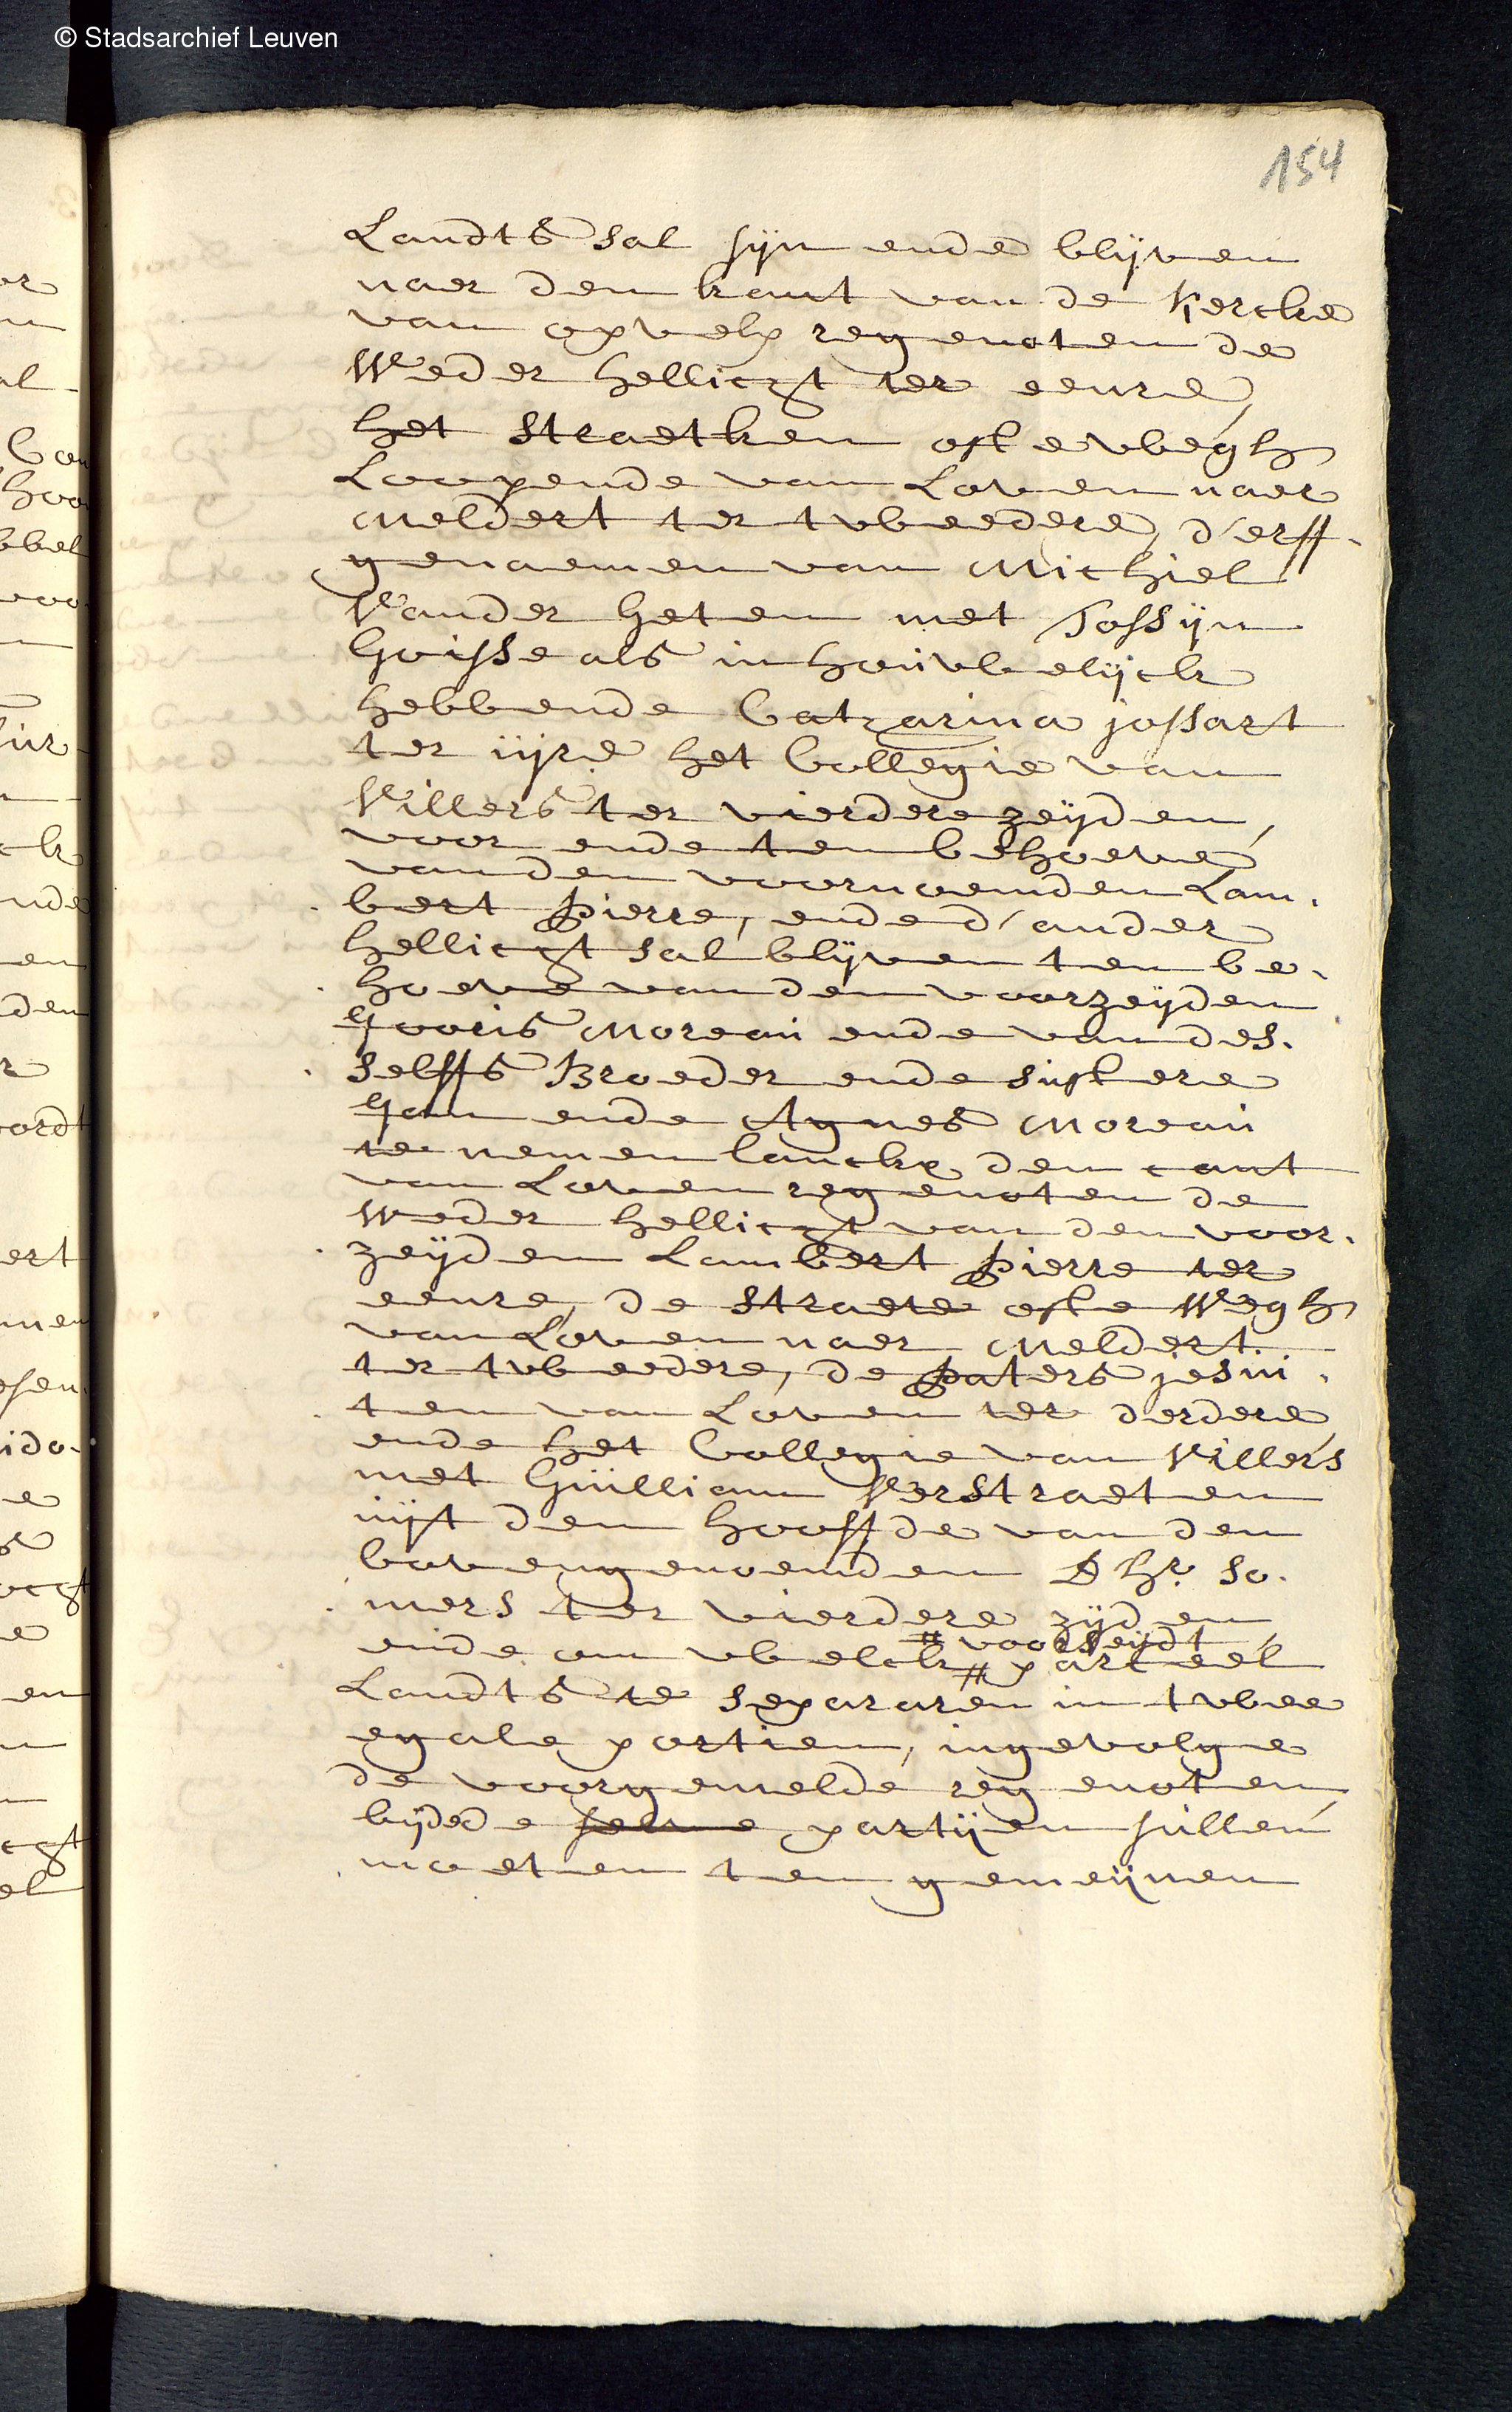 © Stadsarchief Leuven
154
Landts sal sijn ende blijven
naer den kant van de kercke
van opvelp regenoten de
weder hellicht ter eenre,
het straetken ofte wegh
Loopende van Loven naer
Meldert ter tweedere, d'erff-
genaemen van Michiel
vander heten met Jossijn
Goisse als in houwelijck
hebbende Catharina jossart
ter iijre het Collegie van
Villers ter vierdere zeijden,
voor ende ten behoeve
vanden voornoemden Lam-
bert pierre, ende d'ander
hellicht sal blijven ten be-
hoeve vanden voorzeijden
Gooris Moreau ende van des-
selffs Broeder ende sustere
Jan ende Agnes Moreau
te nemen lanckx den cant
van Loven regenoten de
weder hellicht van den voor-
zeijden Lambert pierre ter
eenre, de straete ofte wegh
van Loven naer Meldert
ter tweedere, de paters jesui-
ten van Loven ter derdere
ende het Collegie van Villers
met Guilliam verstraeten
uijt den hooffde van den
bovengenoemden Dhr. so-
mers ter vierdere zijden
# voorseijdt
ende om welck # parceel
Landts te separaren in twee
egale portien, ingevolge
de voorgemelde regenoten
bijde de selve partijen sullen
moeten ten gemeijnen